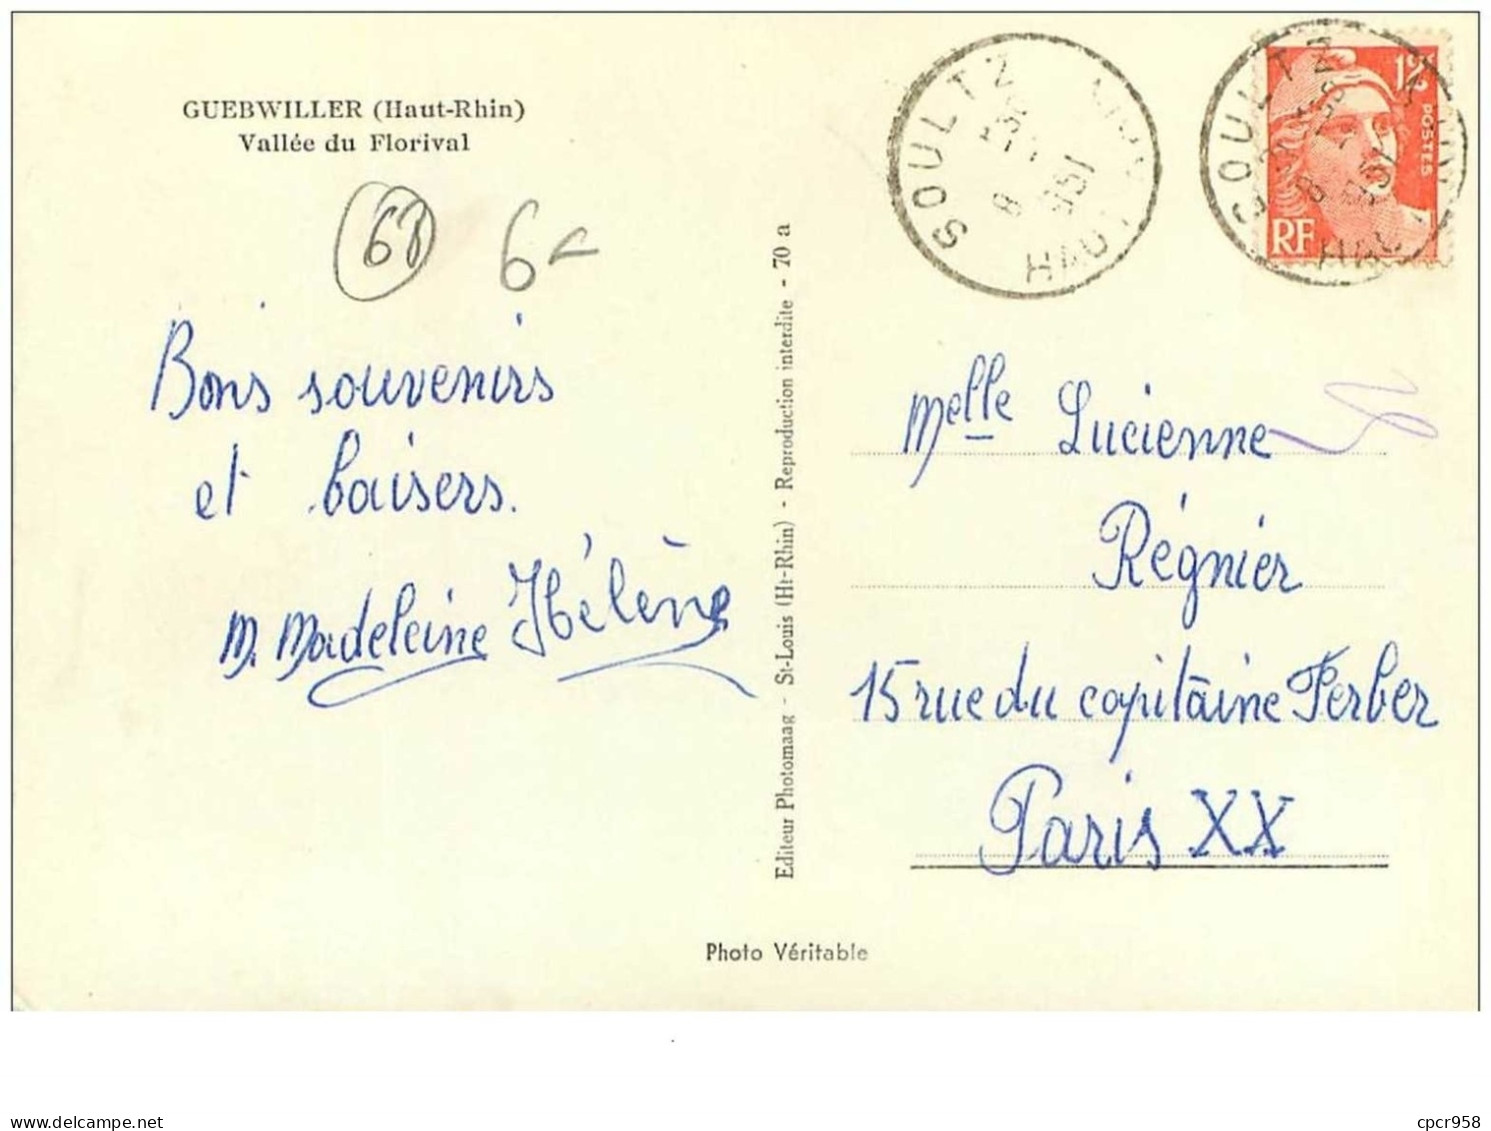 GUEBWILLER (Haut-Rhin)
Vallée du Florival
68
6
Bons souvenirs
et baisers.
M. Madeleine Hélène
Editeur Photomaag - St-Louis (Ht-Rhin) - Reproduction interdite - 70 a
SOULTZ
HAUT
SOULTZ
HAUT
12F
POSTES
RF
Melle Lucienne
Régnier
15 rue du capitaine Ferber
Paris XX
Photo Véritable
cpcr958